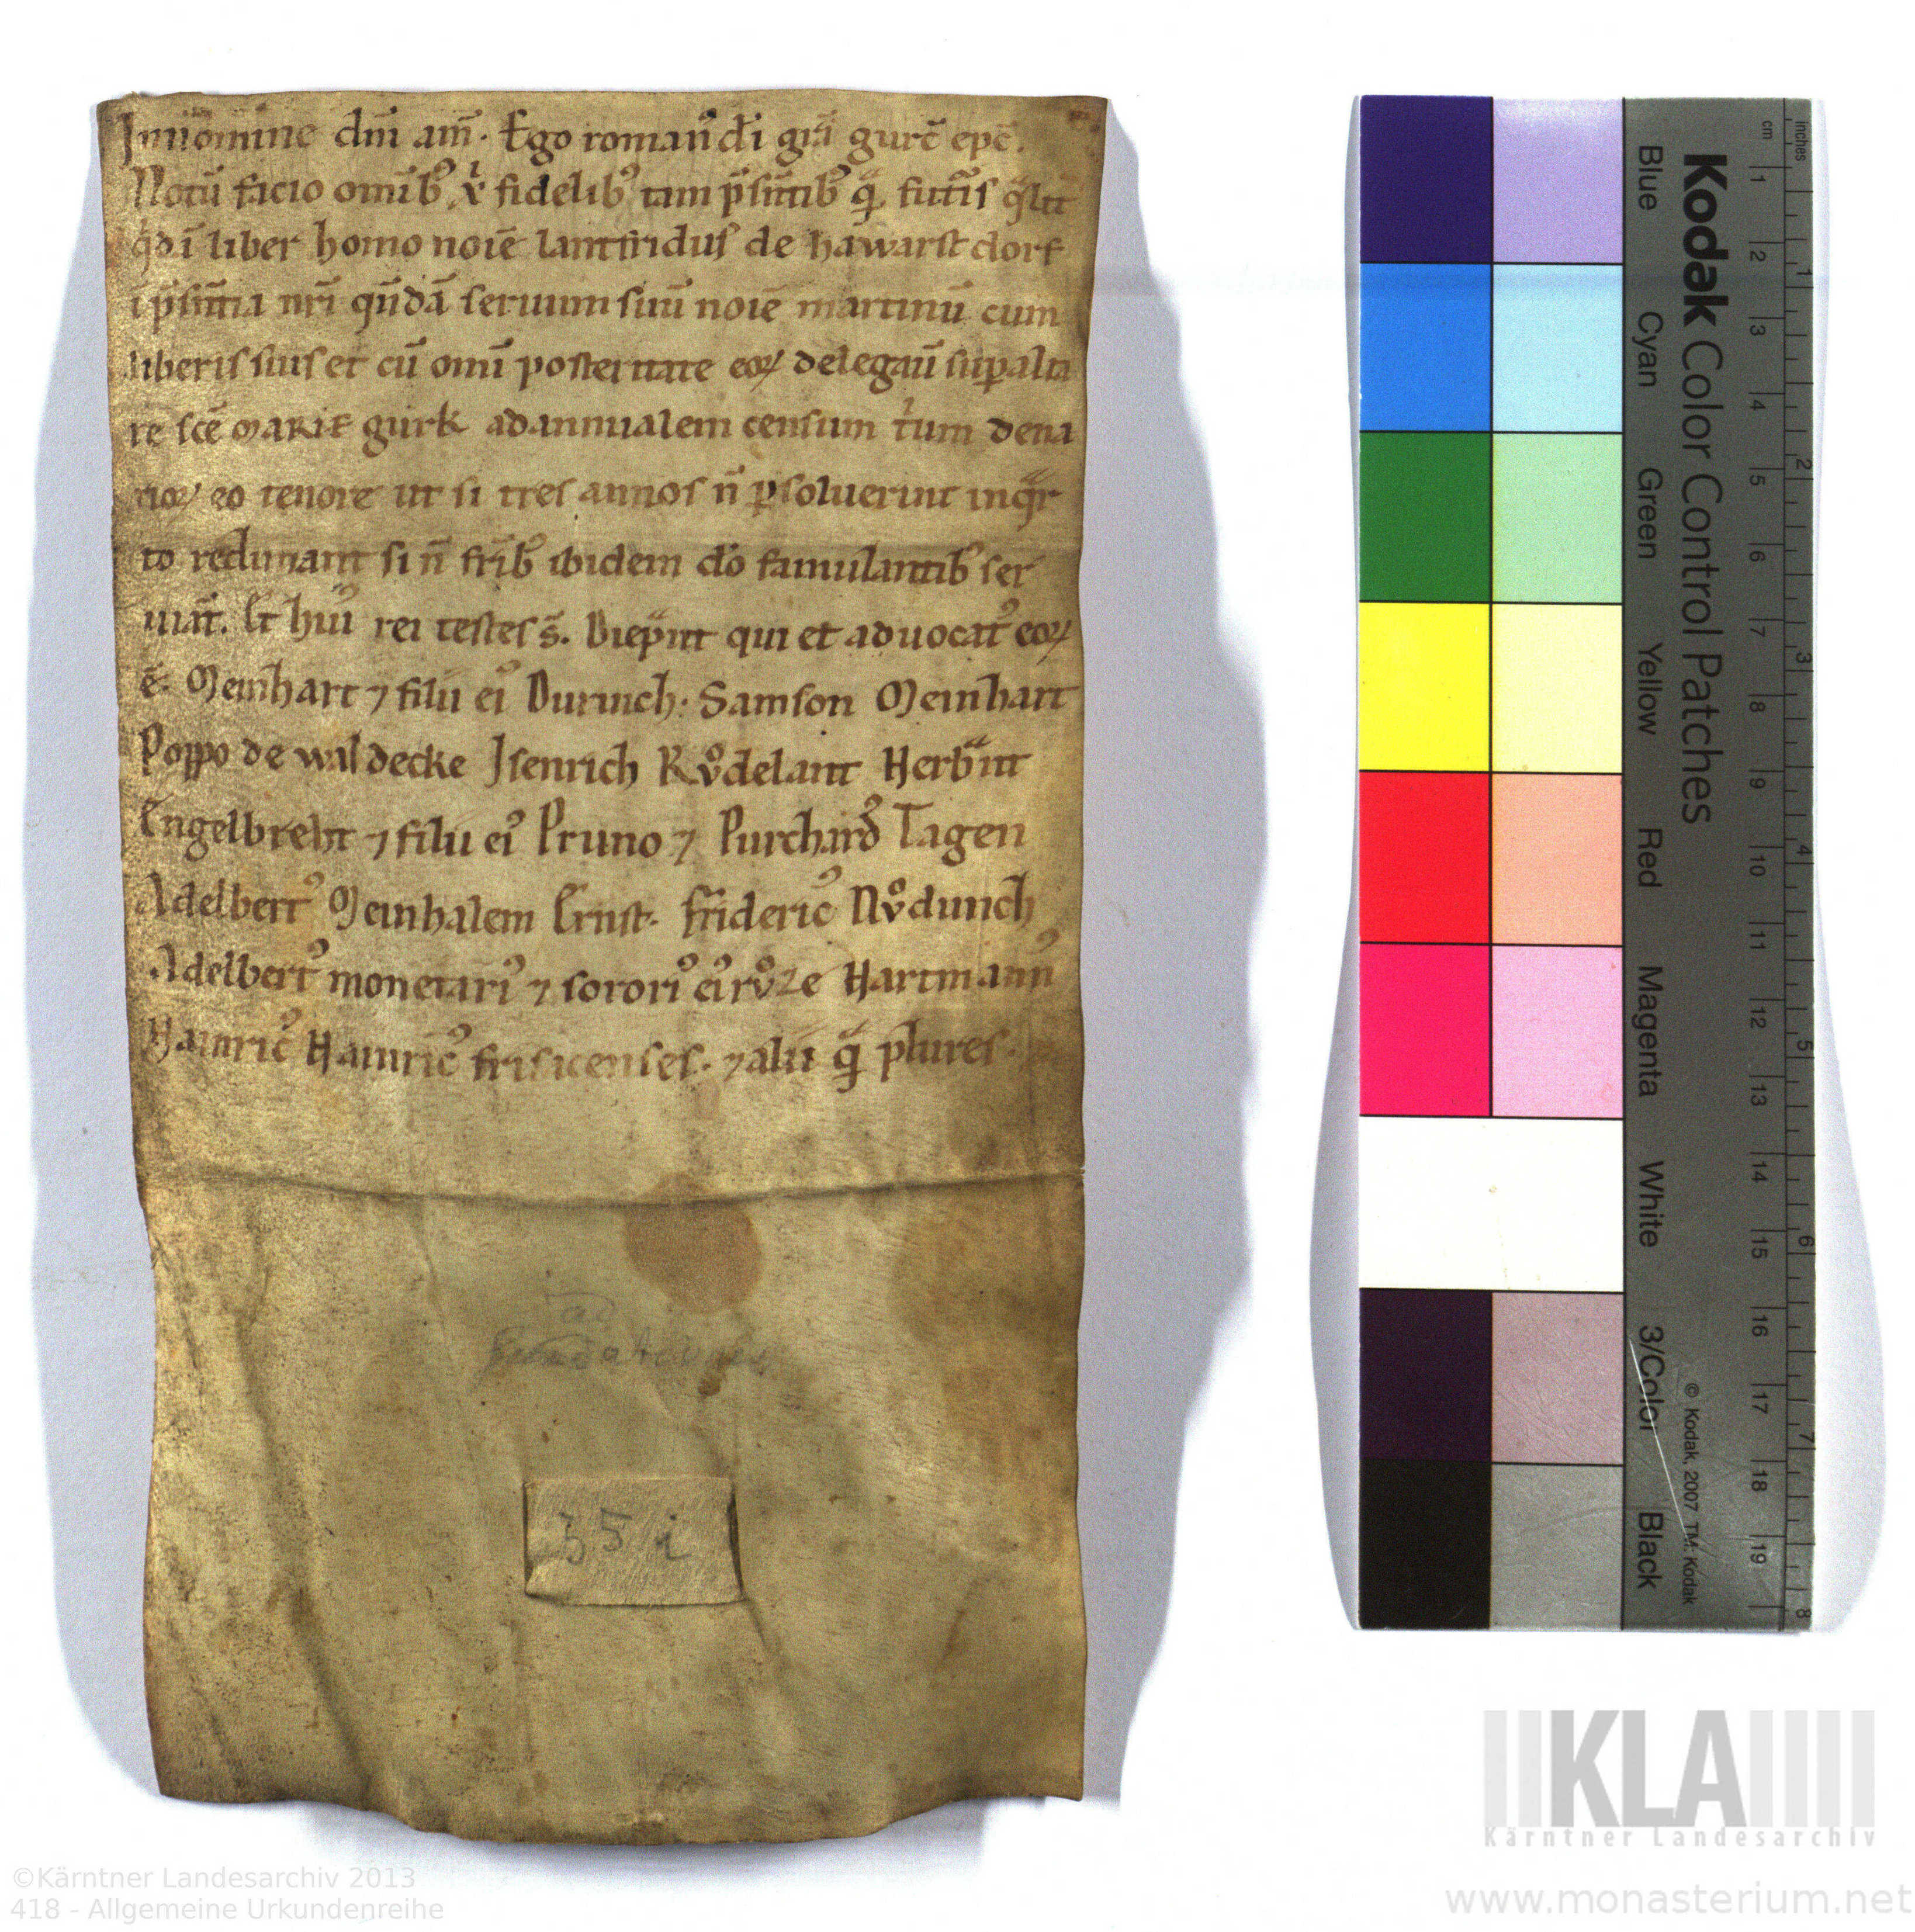 Jnnomine dn̄i am̄. Ego roman᷒ di gr̄a gurc̄ ep̄c.
Notū facio omīb᷒ x̄ fidelib᷒ tam p̄sentib᷒ futīs
liber homo noīe lantfridus de hawarstdorf
nr̄i seruum suū noīe martinū cum
liberis suis et cū omī posteritate eoꝝ delegauī sup alta
re sc̄e MARIE gurk ad annualem censum tͥum dena
rioꝝ eo tenore ut si tres annos n̄ ꝑsoluerint in qͣr
to redimant si n̄ fr̄ib᷒ ibidem dō famulantib᷒ ser
uiāt. Et hui᷒ rei testes s̄. Diepͣnt qui et aduocat᷒ eoꝝ
ē. Meinhart ⁊ filii ei᷒ Durinch. Samson Meinhart
Poppo de waldecke Jsenrich Růdelant Herbͣnt
Engelbreht ⁊ filii ei᷒ Pruno ⁊ Purchard᷒ Tagen
Adelbert᷒ Meinhalem Ernst. fridericͨ᷒ Nůdunch
Adelbert᷒ monetari᷒ ⁊ sorori᷒ ei᷒ růze Hartmann᷒
Hainric᷒ Hainric᷒ frisicenses. ⁊ alii qͣ plures.
ad
35 i
Kodak Color Control Patches
Blue Cyan Green Yellow Red Magenta White 3/Color Black
© Kodak, 2007 TM: Kodak
cm 1 2 3 4 5 6 7 8 9 10 11 12 13 14 15 16 17 18 19
inches 1 2 3 4 5 6 7 8
KLA
Kärntner Landesarchiv
©Kärntner Landesarchiv 2013
418 - Allgemeine Urkundenreihe
www.monasterium.net